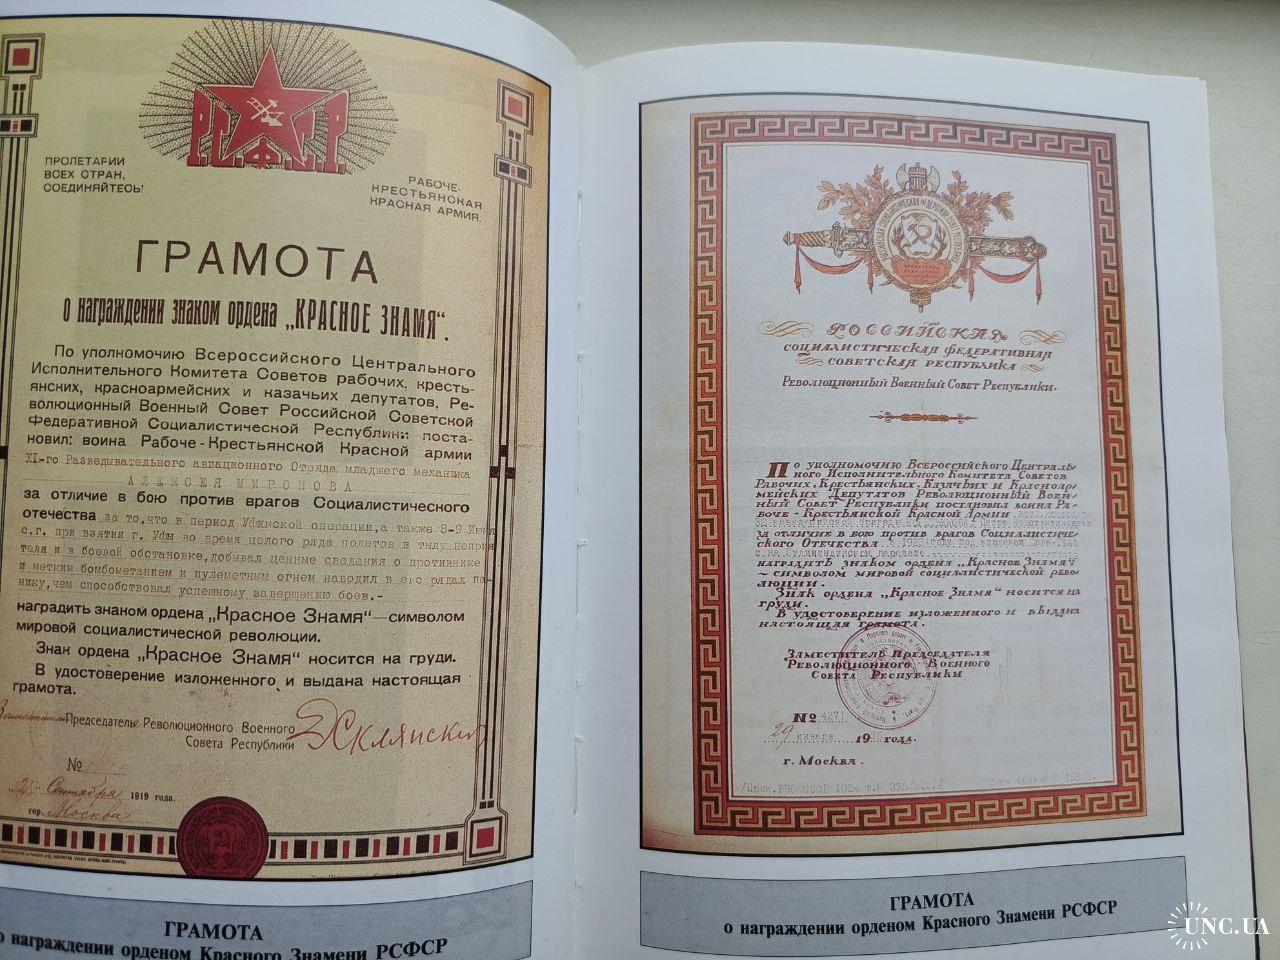 Р.С.Ф.С.Р.
ПРОЛЕТАРИИ
ВСЕХ СТРАН,
СОЕДИНЯЙТЕСЬ!
РАБОЧЕ-
КРЕСТЬЯНСКАЯ
КРАСНАЯ АРМИЯ.
ГРАМОТА
о награждении знаком ордена „КРАСНОЕ ЗНАМЯ“.
По уполномочию Всероссийского Центрального
Исполнительного Комитета Советов рабочих, кресть-
янских, красноармейских и казачьих депутатов, Ре-
волюционный Военный Совет Российской Советской
Федеративной Социалистической Республики поста-
новил: воина Рабоче-Крестьянской Красной армии
XI-го Разведывательного авиационного Отряда младшего механика
АЛЕКСЕЯ МИРОНОВА
за отличие в бою против врагов Социалистического
отечества за то,что в период Уфимской операции,а также 8-9 Июня
с.г. при взятии г. Уфы во время целого ряда полетов в тылу неприя
теля и в боевой обстановке,добывал ценные сведения о противнике
и метким бомбометанием и пулеметным огнем наводил в его рядах па-
нику,чем способствовал успешному завершению боев,-
наградить знаком ордена „Красное Знамя“—символом
мировой социалистической революции.
Знак ордена „Красное Знамя“ носится на груди.
В удостоверение изложенного и выдана настоящая
грамота.
Председатель Революционного Военного
Совета Республики
Э Склянский
№
25 Сентября 1919 года.
гор. Москва
ГРАМОТА
о награждении орденом Красного Знамени РСФСР
РОССИЙСКАЯ
СОЦИАЛИСТИЧЕСКАЯ ФЕДЕРАТИВНАЯ
СОВЕТСКАЯ РЕСПУБЛИКА
РЕВОЛЮЦИОННЫЙ ВОЕННЫЙ СОВЕТ РЕСПУБЛИКИ.
ПО УПОЛНОМОЧИЮ ВСЕРОССИЙСКОГО ЦЕНТРАЛЬ-
НОГО ИСПОЛНИТЕЛЬНОГО КОМИТЕТА СОВЕТОВ
РАБОЧИХ, КРЕСТЬЯНСКИХ, КАЗАЧЬИХ И КРАСНОАР-
МЕЙСКИХ ДЕПУТАТОВ РЕВОЛЮЦИОННЫЙ ВОЕН-
НЫЙ СОВЕТ РЕСПУБЛИКИ ПОСТАНОВИЛ ВОИНА РА-
БОЧЕ-КРЕСТЬЯНСКОЙ КРАСНОЙ АРМИИ
ЗА ОТЛИЧИЕ В БОЮ ПРОТИВ ВРАГОВ СОЦИАЛИСТИЧЕ-
СКОГО ОТЕЧЕСТВА
НАГРАДИТЬ ЗНАКОМ ОРДЕНА „КРАСНОЕ ЗНАМЯ“
- СИМВОЛОМ МИРОВОЙ СОЦИАЛИСТИЧЕСКОЙ РЕВО-
ЛЮЦИИ.
ЗНАК ОРДЕНА „КРАСНОЕ ЗНАМЯ“ НОСИТСЯ НА
ГРУДИ.
В УДОСТОВЕРЕНИЕ ИЗЛОЖЕННОГО И ВЫДАНА
НАСТОЯЩАЯ ГРАМОТА.
ЗАМЕСТИТЕЛЬ ПРЕДСЕДАТЕЛЯ
РЕВОЛЮЦИОННОГО ВОЕННОГО
СОВЕТА РЕСПУБЛИКИ
№ 4271
29 января 19 года.
г. МОСКВА.
/Прик.РВС СССР 1924 г.№ 335/
ГРАМОТА
о награждении орденом Красного Знамени РСФСР
UNC.UA